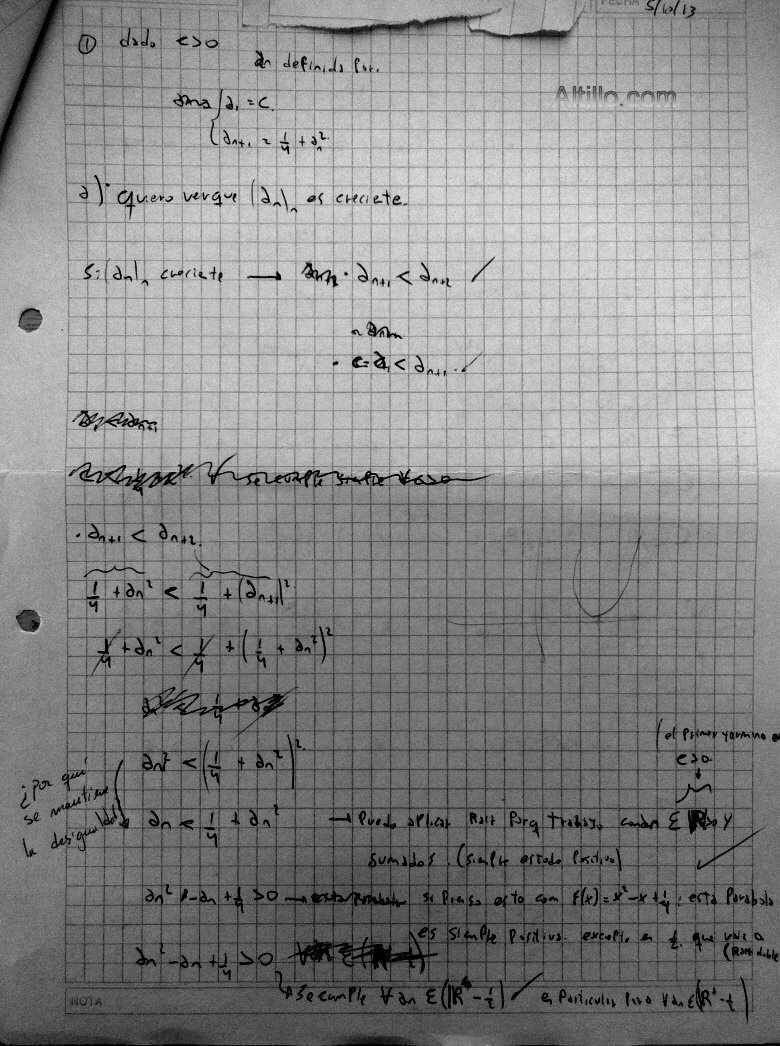 FECHA 5/10/13
① dado c>0
an definida por.
Altillo.com
a1 = c.
an+1 = 1/4 + an²
a) quiero ver que (an)n es creciete.
Si (an)n creciete → · an+1 < an+2 ✓
· c=a1 < an+1. ✓
· an+1 < an+2.
1/4 + an² < 1/4 + (an+1)²
1/4 + an² < 1/4 + (1/4 + an²)²
an² < (1/4 + an²)²
(el primer termino
c>0
¿Por qué
se mantiene
la desigualdad
an < 1/4 + an² → Puedo aplicar Raiz Porq trabajo con an ∈ R>0 y
sumados. (siempre es todo positivo) ✓
an² - an + 1/4 > 0 → si pienso esto com f(x) = x² - x + 1/4; esta Parabola
es siempre Positiva. excepto en 1/2, que vale 0
(Raiz doble)
an² - an + 1/4 > 0
→ se cumple ∀ an ∈ (R - 1/2) ✓ en Particular Para ∀ an ∈ (R⁺ - 1/2)
NOTA